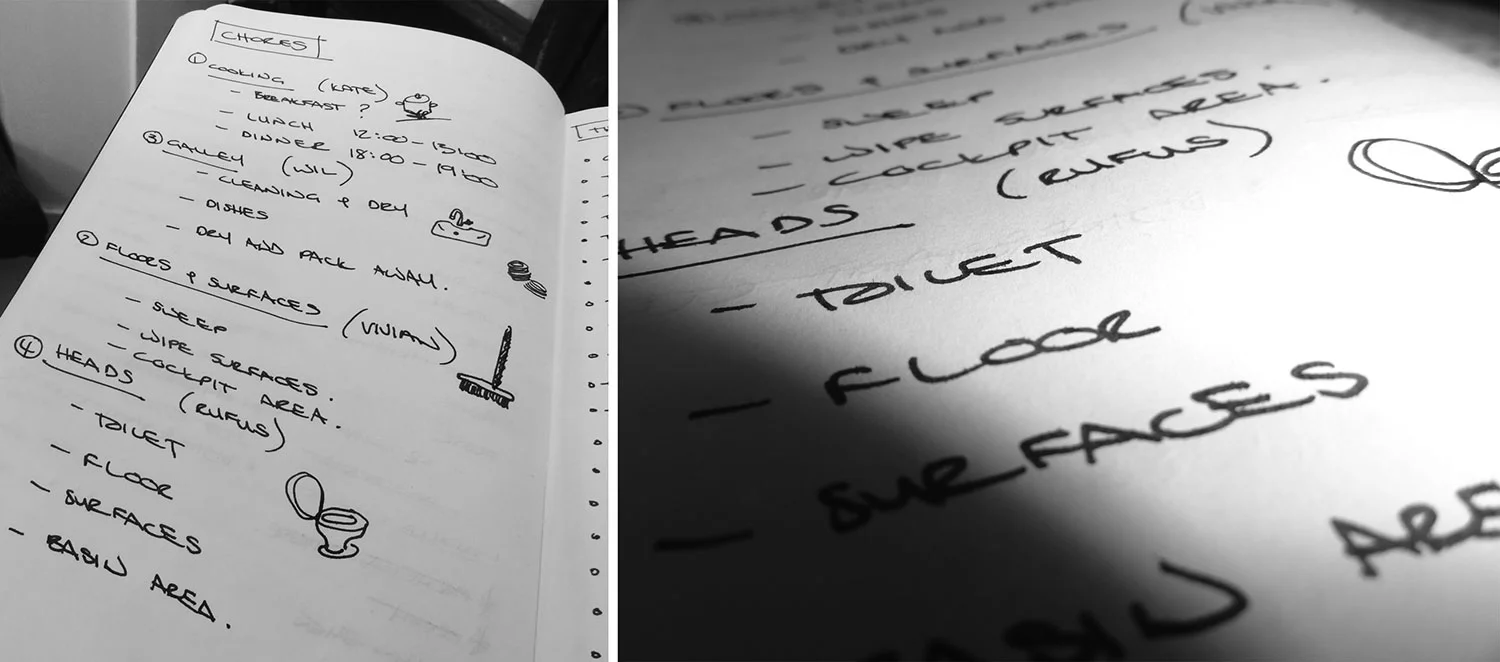 CHORES
① COOKING (KATE)
- BREAKFAST ?
- LUNCH 12:00 - 13:00
- DINNER 18:00 - 19:00
③ GALLEY (WIL)
- CLEANING & DRY
- DISHES
- DRY AND PACK AWAY.
② FLOORS & SURFACES (VIVIAN)
- SWEEP
- WIPE SURFACES.
- COCKPIT AREA.
④ HEADS (RUFUS)
- TOILET
- FLOOR
- SURFACES
- BASIN AREA.
FLOORS & SURFACES
- SWEEP
- WIPE SURFACES.
- COCKPIT AREA.
HEADS (RUFUS)
- TOILET
- FLOOR
- SURFACES
BASIN ARE